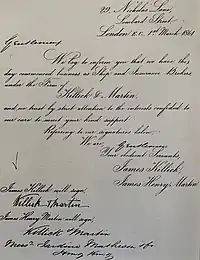 29, Nicholas Lane,
Lombard Street
London E.C. 1st March 1861
Gentlemen
We beg to inform you that we have this
day commenced business as Ship and Insurance Brokers
under the Firm of
Killick & Martin
and we trust by strict attention to the interests confided to
our care to merit your kind support
Referring to our signatures below
We are, Gentlemen
Your obedient Servants,
James Killick,
James Henry Martin
James Killick will sign,
Killick & Martin
James Henry Martin will sign,
Killick & Martin
Messrs Jardine Matheson & Co
Hong Kong